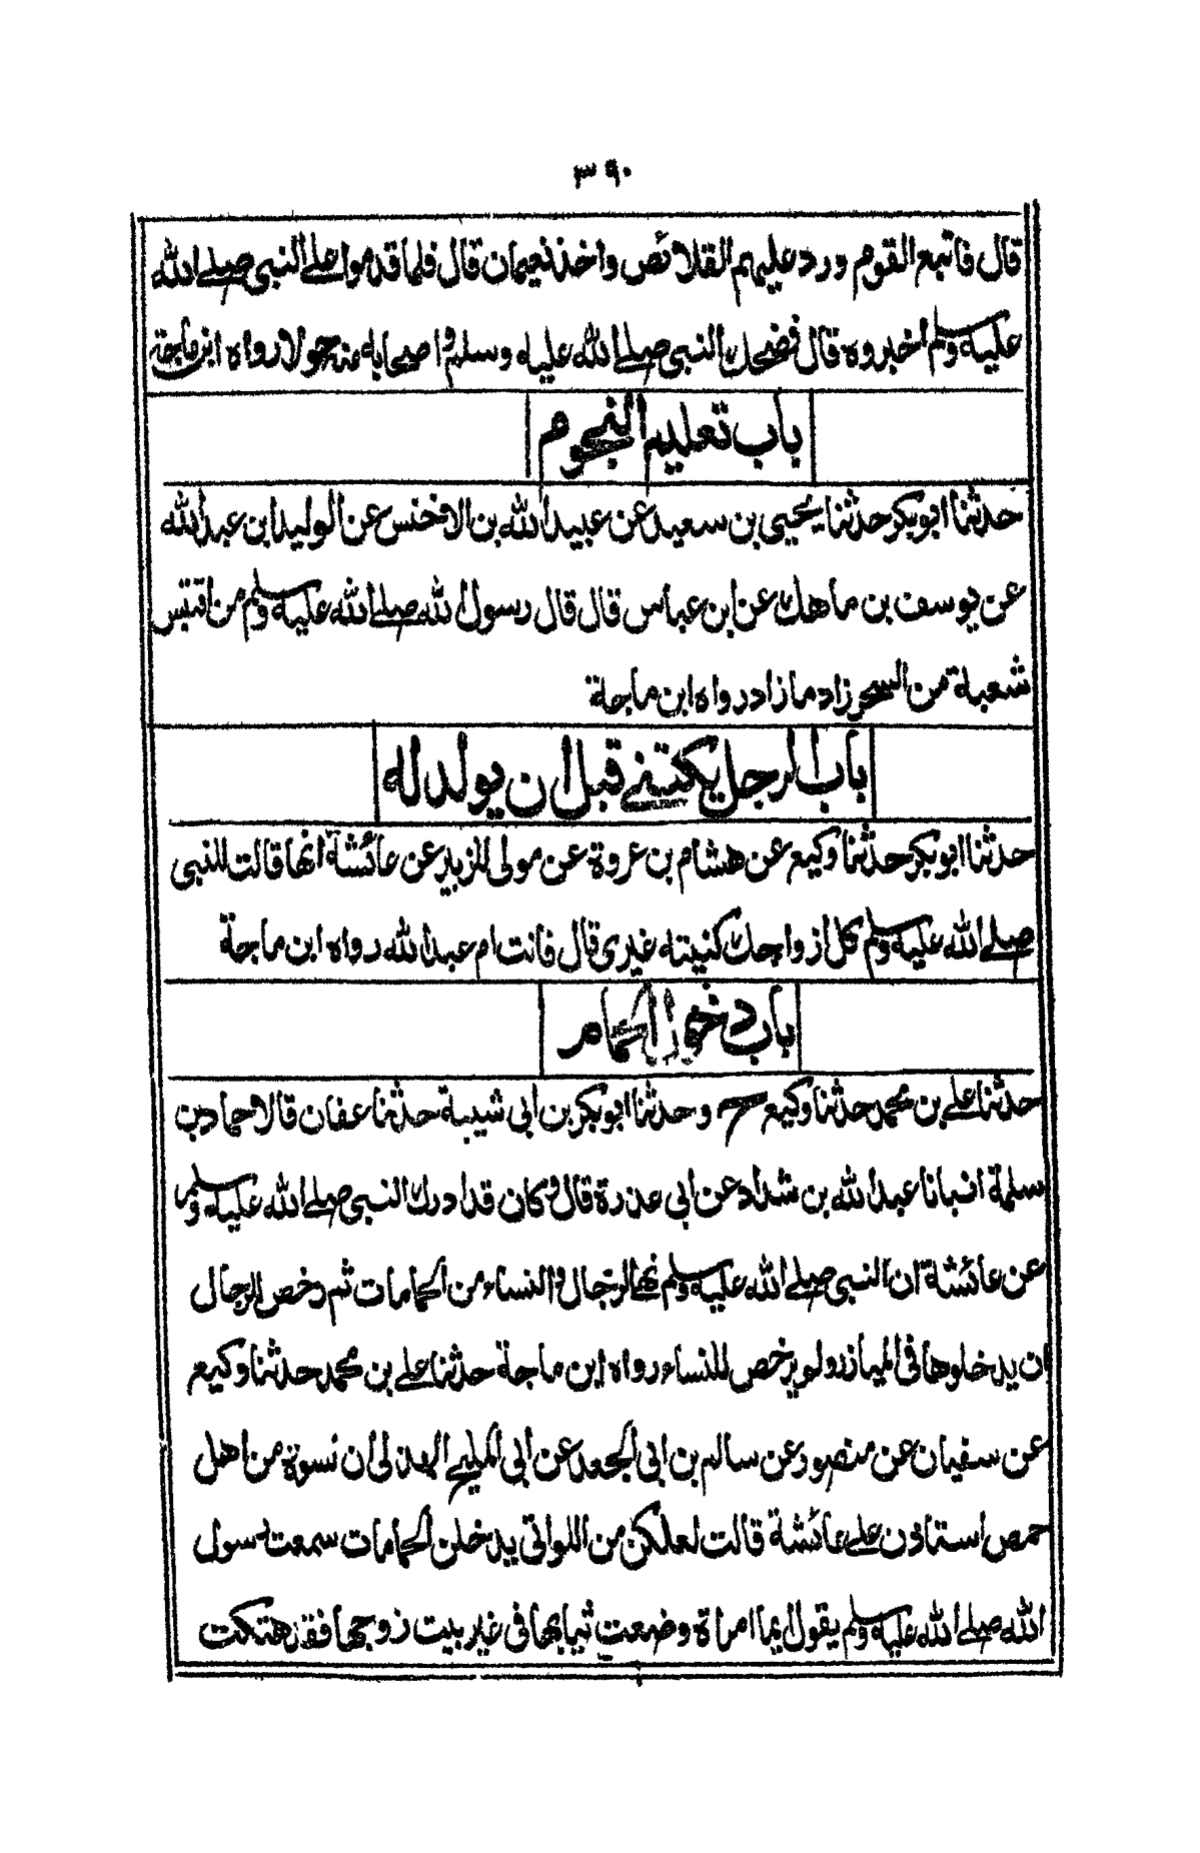 ٣٩٠
قال فاتبع القوم ورد عليهم القلائص واخذ نعيمان قال فلما قدموا على النبي صلى الله
عليه وسلم اخبروه قال فضحك النبي صلى الله عليه وسلم واصحابه منه حولا رواه ابن ماجة
باب تعليم النجوم
حدثنا ابو بكر حدثنا يحيى بن سعيد عن عبيد الله بن الاخنس عن الوليد ابن عبد الله
عن يوسف بن ماهك عن ابن عباس قال قال رسول الله صلى الله عليه وسلم من اقتبس
شعبة من السحر زاد ما زاد رواه ابن ماجة
باب الرجل يكتنى قبل ان يولد له
حدثنا ابو بكر حدثنا وكيع عن هشام بن عروة عن مولى للزبير عن عائشة انها قالت للنبي
صلى الله عليه وسلم كل ازواجك كنيته غيرى قال فانت ام عبد الله رواه ابن ماجة
باب دخول الحمام
حدثنا على بن محمد حدثنا وكيع ح وحدثنا ابو بكر بن ابى شيبة حدثنا عفان قالا حماد بن
سلمة انبانا عبد الله بن شداد عن ابى عذرة قال وكان قد ادرك النبى صلى الله عليه وسلم
عن عائشة ان النبى صلى الله عليه وسلم نهى الرجال والنساء من الحمامات ثم رخص الرجال
ان يدخلوها فى الميازر ولم يرخص للنساء رواه ابن ماجة حدثنا على بن محمد حدثنا وكيع
عن سفيان عن منصور عن سالم بن ابى الجعد عن ابى المليح الهذلى ان نسوة من اهل
حمص استاذن على عائشة قالت لعلكن من اللواتى يدخلن الحمامات سمعت رسول
الله صلى الله عليه وسلم يقول ايما امراة وضعت ثيابها فى غير بيت زوجها فقد هتكت